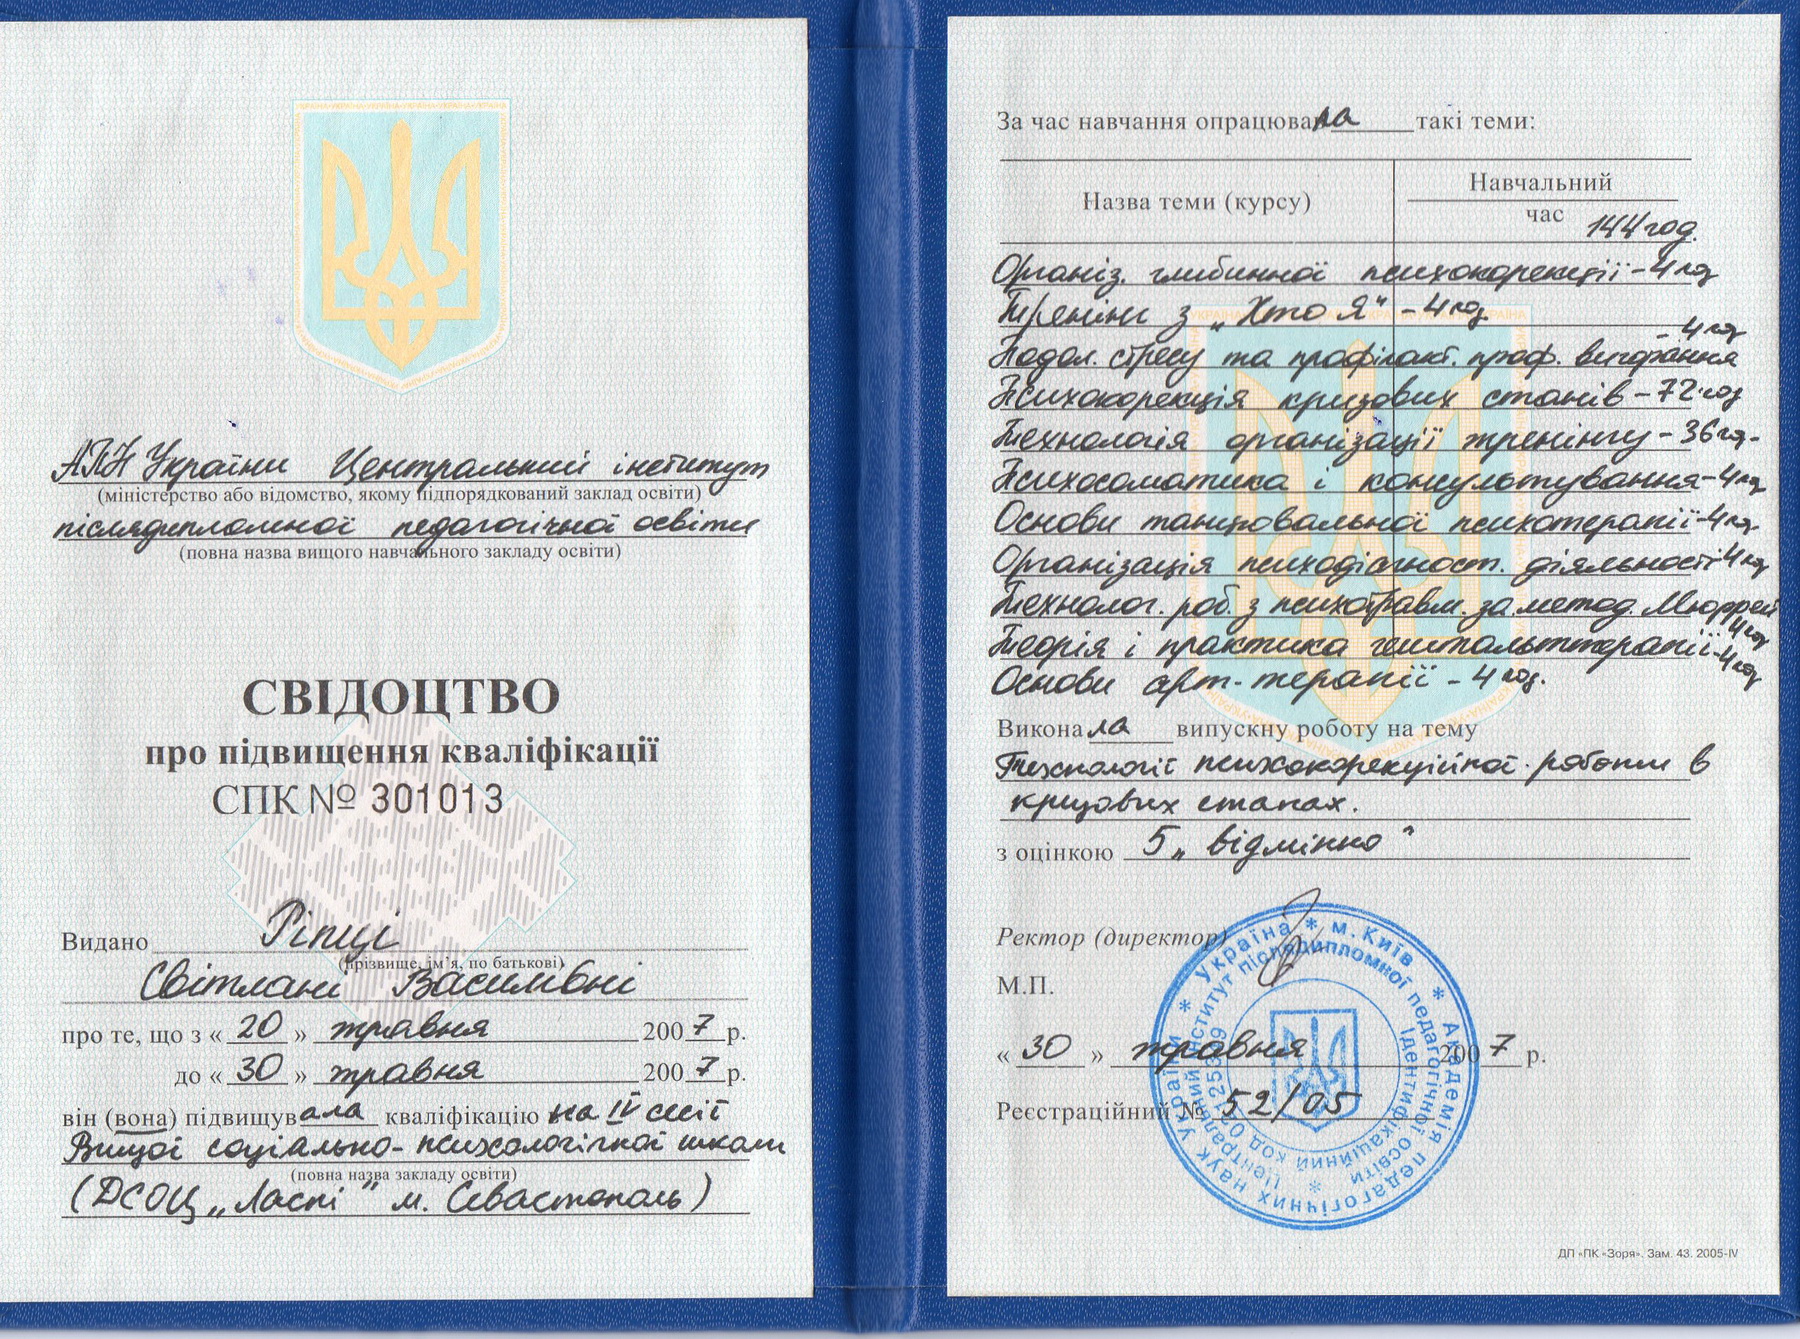 АПН України Центральний інститут
(міністерство або відомство, якому підпорядкований заклад освіти)
післядипломної педагогічної освіти
(повна назва вищого навчального закладу освіти)
СВІДОЦТВО
про підвищення кваліфікації
СПК № 301013
Видано Ріпці
(прізвище, ім’я, по батькові)
Світлані Василівні
про те, що з « 20 » травня 2007 р.
до « 30 » травня 2007 р.
він (вона) підвищувала кваліфікацію на IV сесії
Вищої соціально-психологічної школи
(повна назва закладу освіти)
(ДСОЦ „Ласпі” м. Севастополь)
За час навчання опрацювала такі теми:
Назва теми (курсу)
Навчальний
час
144 год.
Організ. глибинної психокорекції - 4 год
Тренінг з „Хто Я” - 4 год
- 4 год
Подол. стресу та профілакт. проф. вигорання
Психокорекція кризових станів - 72 год
Технологія організації тренінгу - 36 год.
Психосоматика і консультування - 4 год
Основи танцювальної психотерапії - 4 год.
Організація психодіагност. діяльності 4 год
Технолог. роб. з психотравм. за метод. Мюррей
4 год
Теорія і практика гештальттерапії - 4 год
Основи арт-терапії - 4 год.
Виконала випускну роботу на тему
Технології психокорекційної роботи в
кризових станах.
з оцінкою 5 „відмінно”
Ректор (директор)
М.П.
« 30 » травня 2007 р.
Реєстраційний № 52/05
* Україна * м. Київ * Академія педагогічних наук України
Центральний інститут післядипломної педагогічної освіти *
Ідентифікаційний код
ДП «ПК «Зоря». Зам. 43. 2005-IV